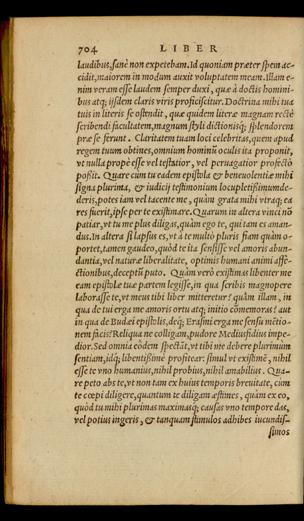 704 LIBER
laudibus, sanè non expetebam. Id quoniam præter spem ac-
cidit, maiorem in modum auxit voluptatem meam. Illam e-
nim veram esse laudem semper duxi, quæ à doctis homini-
bus atq; ijsdem claris viris proficiscitur. Doctrina mihi tua
tuis in literis se ostendit, quæ quidem literæ magnam rectè
scribendi facultatem, magnum styli dictionisq; splendorem
præ se ferunt. Claritatem tuam loci celebritas, quem apud
regem tuum obtines, omnium hominũ oculis ita proponit,
vt nulla propè esse vel testatior, vel peruagatior profectò
possit. Quare cùm tu eadem epistola & beneuolentiæ mihi
signa plurima, & iudicij testimonium locupletissimum de-
deris, potes iam vel tacente me, quàm grata mihi vtraq; ea
res fuerit, ipse per te existimare. Quarum in altera vinci nõ
patiar, vt tu me plus diligas, quàm ego te, qui tam es aman-
dus. In altera si lapsus es, vt à te multò pluris fiam quàm o-
portet, tamen gaudeo, quòd te ita sensisse vel amoris abun-
dantia, vel naturæ liberalitate, optimis humani animi affe-
ctionibus, decepti puto. Quàm verò existimas libenter me
eam epistolæ tuæ partem legisse, in qua scribis magnopere
laborasse te, vt meus tibi liber mitteretur? quàm illam, in
qua de tui erga me amoris ortu atq; initio cõmemoras? aut
in qua de Budæi epistolis, deq; Erasmi erga me sensu mẽtio-
nem facis? Reliqua ne colligam, pudore Mediusfidius impe-
dior. Sed omnia eòdem spectãt, vt tibi me debere plurimùm
sentiam, idq; libentissimè profitear: simul vt existimẽ, nihil
esse te vno humanius, nihil probius, nihil amabilius. Qua-
re peto abs te, vt non tam ex huius temporis breuitate, cùm
te cœpi diligere, quantum te diligam æstimes, quàm ex eo,
quòd tu mihi plurimas maximasq; causas vno tempore das,
vel potius ingeris, & tanquam stimulos adhibes iucundis-
simos